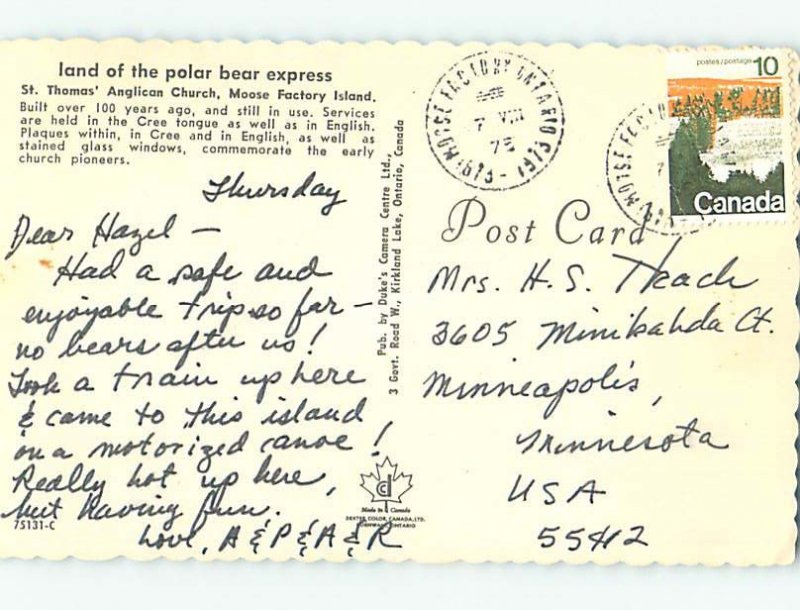 land of the polar bear express
St. Thomas' Anglican Church, Moose Factory Island.
Built over 100 years ago, and still in use. Services
are held in the Cree tongue as well as in English.
Plaques within, in Cree and in English, as well as
stained glass windows, commemorate the early
church pioneers.
Thursday
Dear Hazel —
Had a safe and
enjoyable trip so far —
no bears after us!
Took a train up here
& came to this island
on a motorized canoe!
Really hot up here,
but having fun.
Love, A & P & A & R
75131-C
Pub. by Duke's Camera Centre Ltd.,
3 Govt. Road W., Kirkland Lake, Ontario, Canada
Made in Canada
DEXTER COLOR CANADA, LTD.
CORNWALL, ONTARIO
MOOSE FACTORY ONTARIO
7 VIII
75
1673-1973
MOOSE FACTO
7
postes/postage 10
Canada
Post Card
Mrs. H. S. Theach
3605 Minikahda Ct.
Minneapolis,
Minnesota
USA
55412